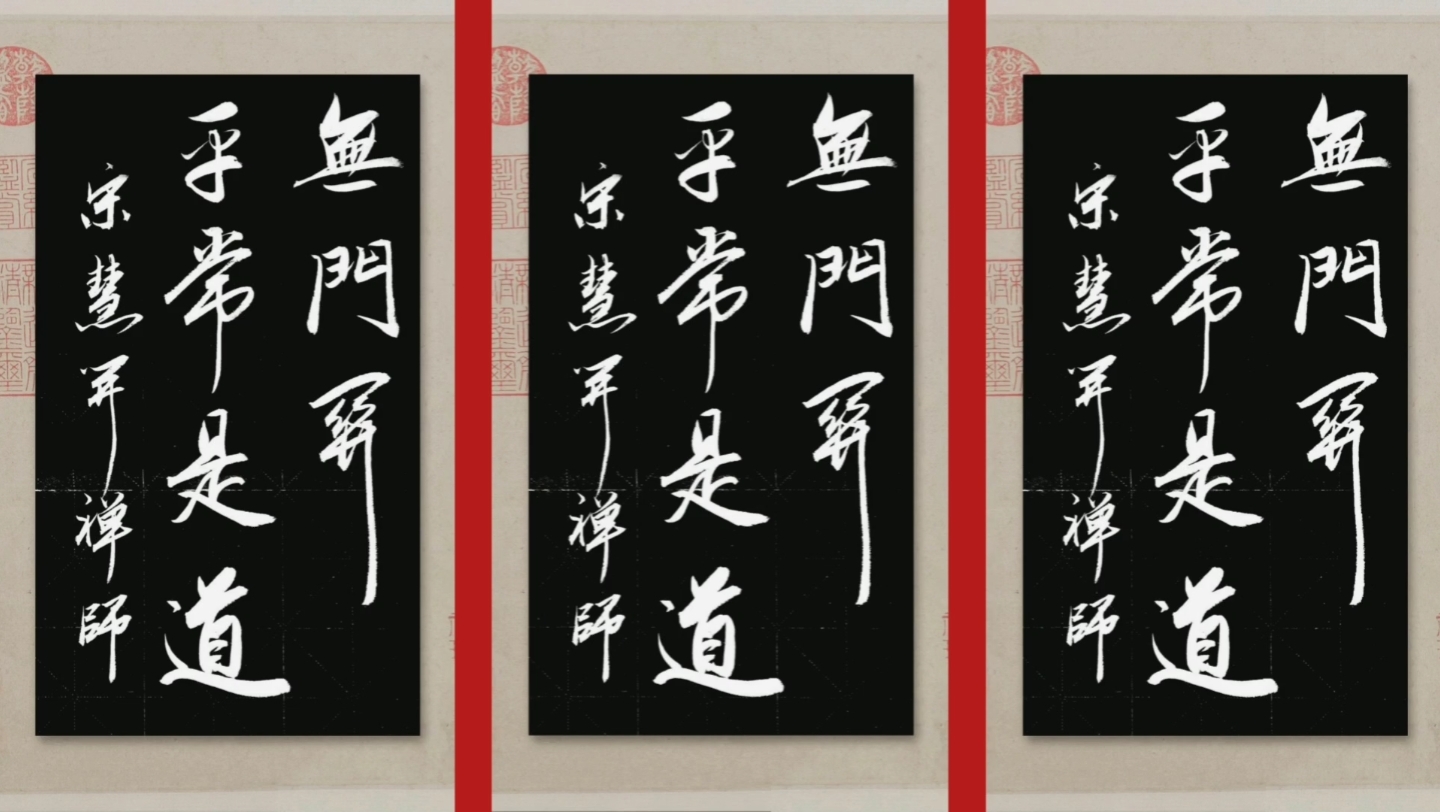 無門關
平常是道
宋慧開禅師
無門關
平常是道
宋慧開禅師
無門關
平常是道
宋慧開禅師